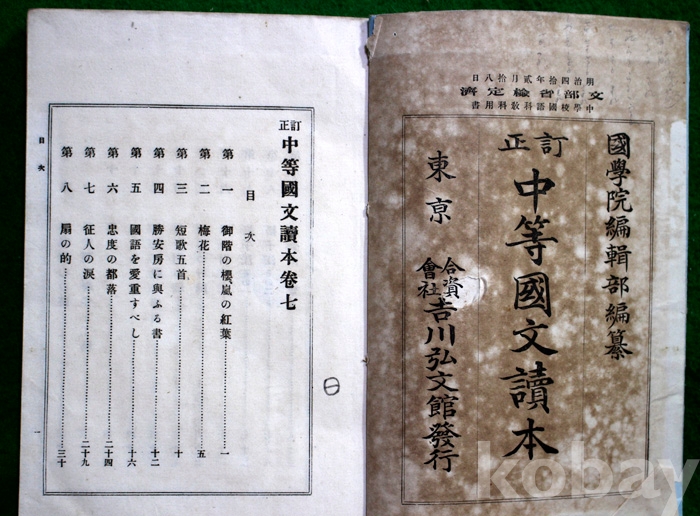 明治四拾年貳月拾八日
文部省檢定濟
中學校國語科敎科用書
國學院編輯部編纂
訂正
中等國文讀本
東京
合資會社 吉川弘文館發行
訂正
中等國文讀本卷七
目次
第一 御階の櫻嵐の紅葉 一
第二 梅花 五
第三 短歌五首 十
第四 勝安房に與ふる書 十二
第五 國語を愛重すべし 十六
第六 忠度の都落 二十四
第七 征人の淚 二十九
第八 扇の的 三十
目次
一
kobay